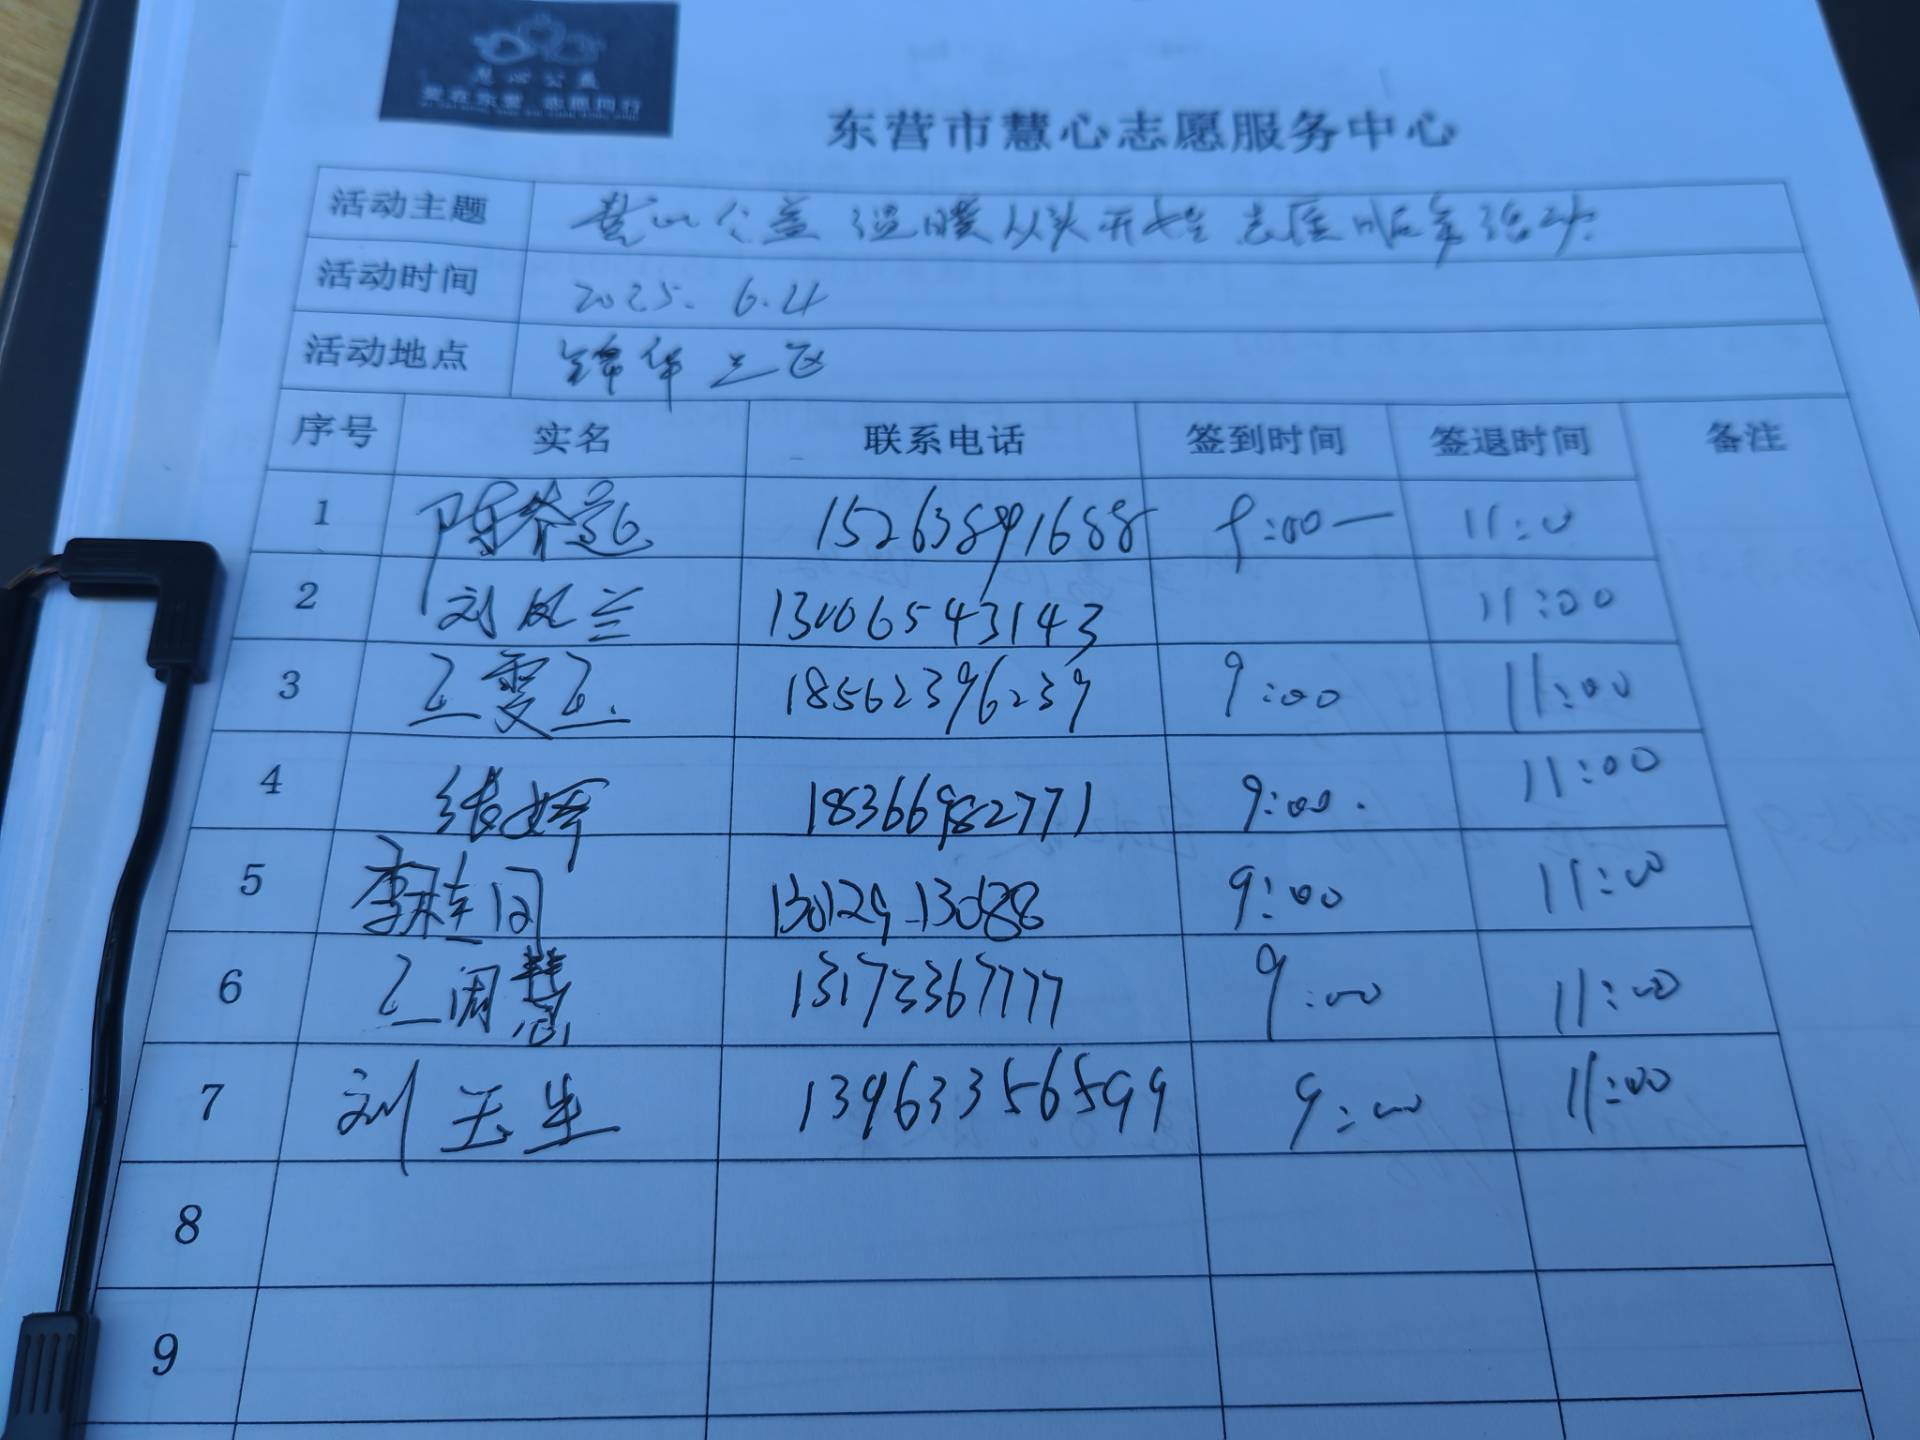 慧心公益
爱在东营 志愿同行
东营市慧心志愿服务中心
活动主题 慧心公益 温暖从头开始 志愿 活动
活动时间 2025.6.4
活动地点 锦华三区
序号 实名 联系电话 签到时间 签退时间 备注
1 15263891688 9:00— 11:0
2 刘凤兰 13006543143 11:00
3 王雯王 18562396239 9:00 11:00
4 张婷 18366982771 9:00. 11:00
5 李桂同 13012913088 9:00 11:00
6 王闲慧 13173367777 9:00 11:00
7 刘玉生 13963356599 9:00 11:00
8
9